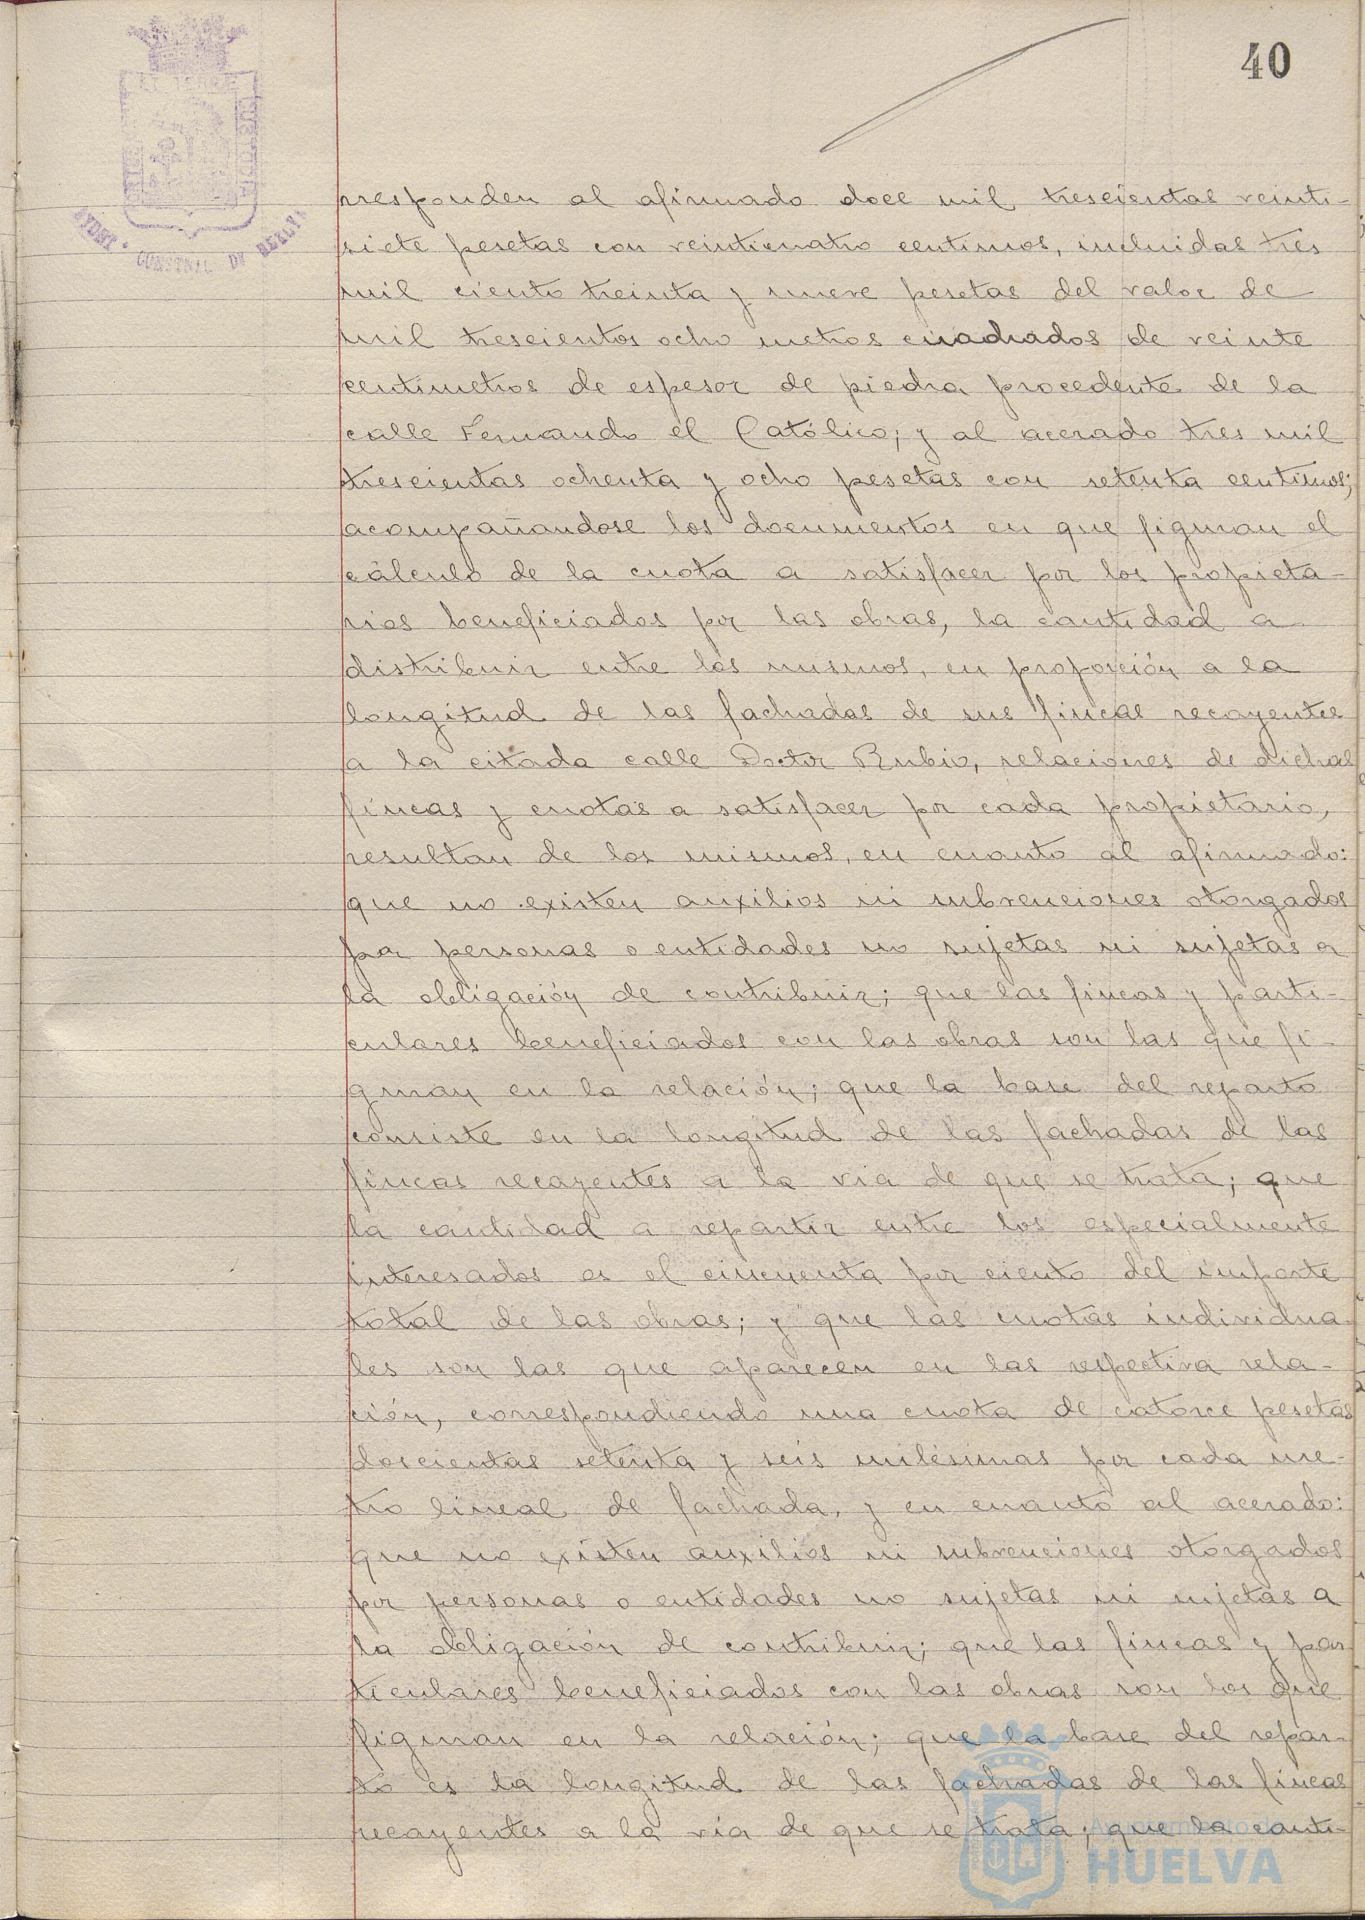 40
rresponden al afirmado doce mil trescientas veinti-
siete pesetas con veinticuatro centimos, incluidas tres
mil ciento treinta y nueve pesetas del valor de
mil trescientos ocho metros cuadrados de veinte
centimetros de espesor de piedra procedente de la
calle Fernando el Católico; y al acerado tres mil
trescientas ochenta y ocho pesetas con setenta centimos;
acompañandose los documentos en que figuran el
cálculo de la cuota a satisfacer por los propieta-
rios beneficiados por las obras, la cantidad a
distribuir entre los mismos, en proporción a la
longitud de las fachadas de sus fincas recayentes
a la citada calle Doctor Rubio, relaciones de dichas
fincas y cuotas a satisfacer por cada propietario,
resultan de los mismos, en cuanto al afirmado:
que no existen auxilios ni subvenciones otorgados
por personas o entidades no sujetas ni sujetas a
la obligación de contribuir; que las fincas y parti-
culares beneficiados con las obras son las que fi-
guran en la relación; que la base del reparto
consiste en la longitud de las fachadas de las
fincas recayentes a la via de que se trata; que
la cantidad a repartir entre los especialmente
interesados es el cincuenta por ciento del importe
total de las obras; y que las cuotas individua
les son las que aparecen en las respectiva rela-
ción, correspondiendo una cuota de catorce pesetas
doscientas setenta y seis milésimas por cada me-
tro lineal de fachada, y en cuanto al acerado:
que no existen auxilios ni subvenciones otorgados
por personas o entidades no sujetas ni sujetas a
la obligación de contribuir; que las fincas y par
ticulares beneficiados con las obras son los que
figuran en la relación; que la base del repar-
to es la longitud de las fachadas de las fincas
recayentes a la vía de que se trata; que la canti-
Ayuntamiento de
HUELVA